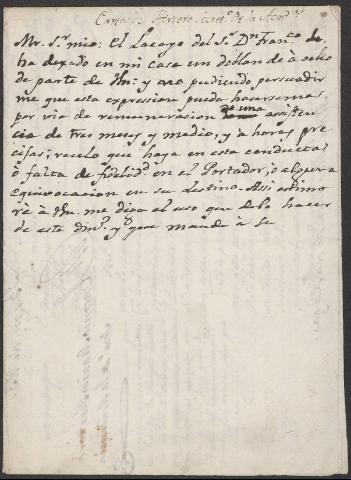 Herrero Secret.º de la Acad.ª
Mr. S.r mio: El Lacayo del S.r Dn Fran.co de
ha dexado en mi casa un doblon de à ocho
de parte de Vm: y no pudiendo persuadir
me que esta expresion pueda hacerseme
por via de remuneracion de una asisten
cia de tres meses y medio, y à horas pre
cisas; recelo que haya en esta conducta
ò falta de fidelid.d en el Portador, ò alguna
equivocacion en su destino. Asi estima
rè à Vm. me diga el uso que debo hacer
de este din.º y que mande à su